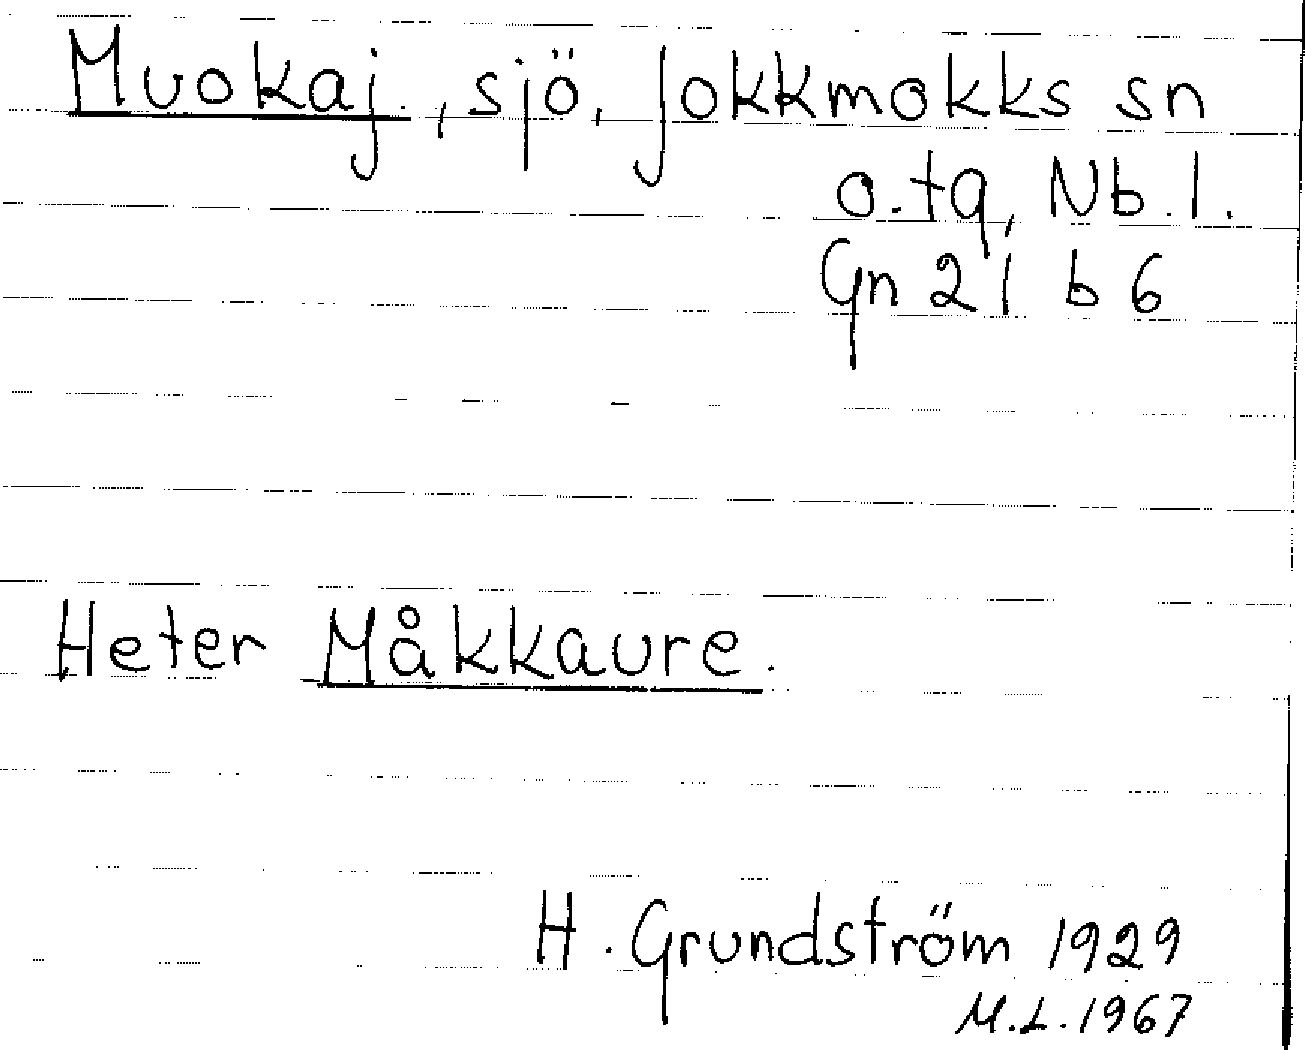 Muokaj, sjö, Jokkmokks sn
o. tg, Nb. l.
Gn 21 b 6
Heter Måkkaure.
H. Grundström 1929
M.L. 1967